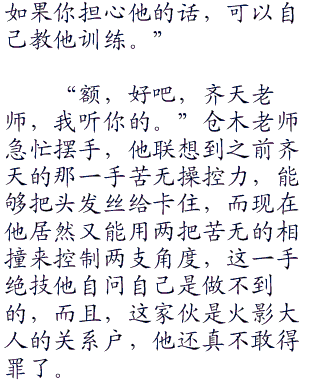 如果你担心他的话，可以自
己教他训练。”
“额，好吧，齐天老
师，我听你的。”仓木老师
急忙摆手，他联想到之前齐
天的那一手苦无操控力，能
够把头发丝给卡住，而现在
他居然又能用两把苦无的相
撞来控制两支角度，这一手
绝技他自问自己是做不到
的，而且，这家伙是火影大
人的关系户，他还真不敢得
罪了。